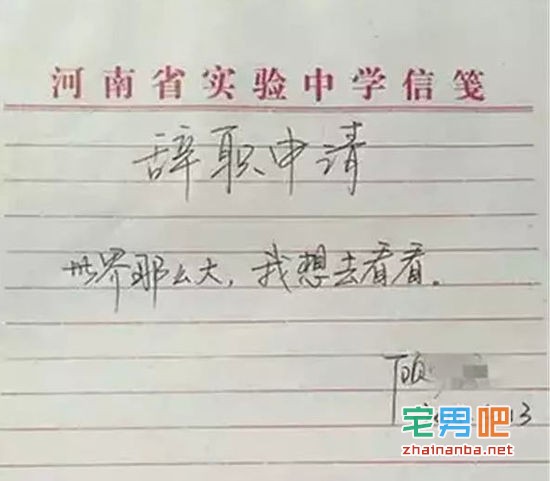 河南省实验中学信笺
辞职申请
世界那么大，我想去看看。
顾
13
宅男吧
zhainanba.net